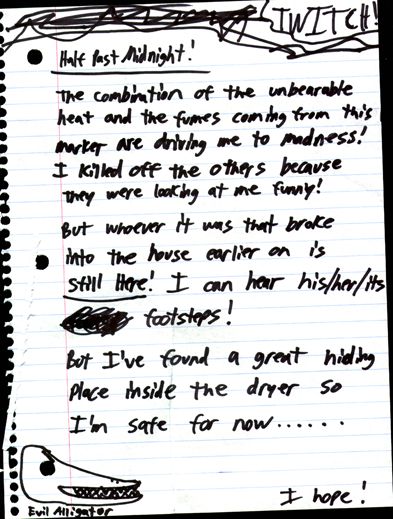 TWITCH!
Half Past Midnight!
The combination of the unbearable
heat and the fumes coming from this
marker are driving me to madness!
I killed off the others because
they were looking at me funny!
But whoever it was that broke
into the house earlier on is
still Here! I can hear his/her/its
footsteps!
But I've found a great hiding
Place inside the dryer so
I'm safe for now......
I hope!
Evil Alligator